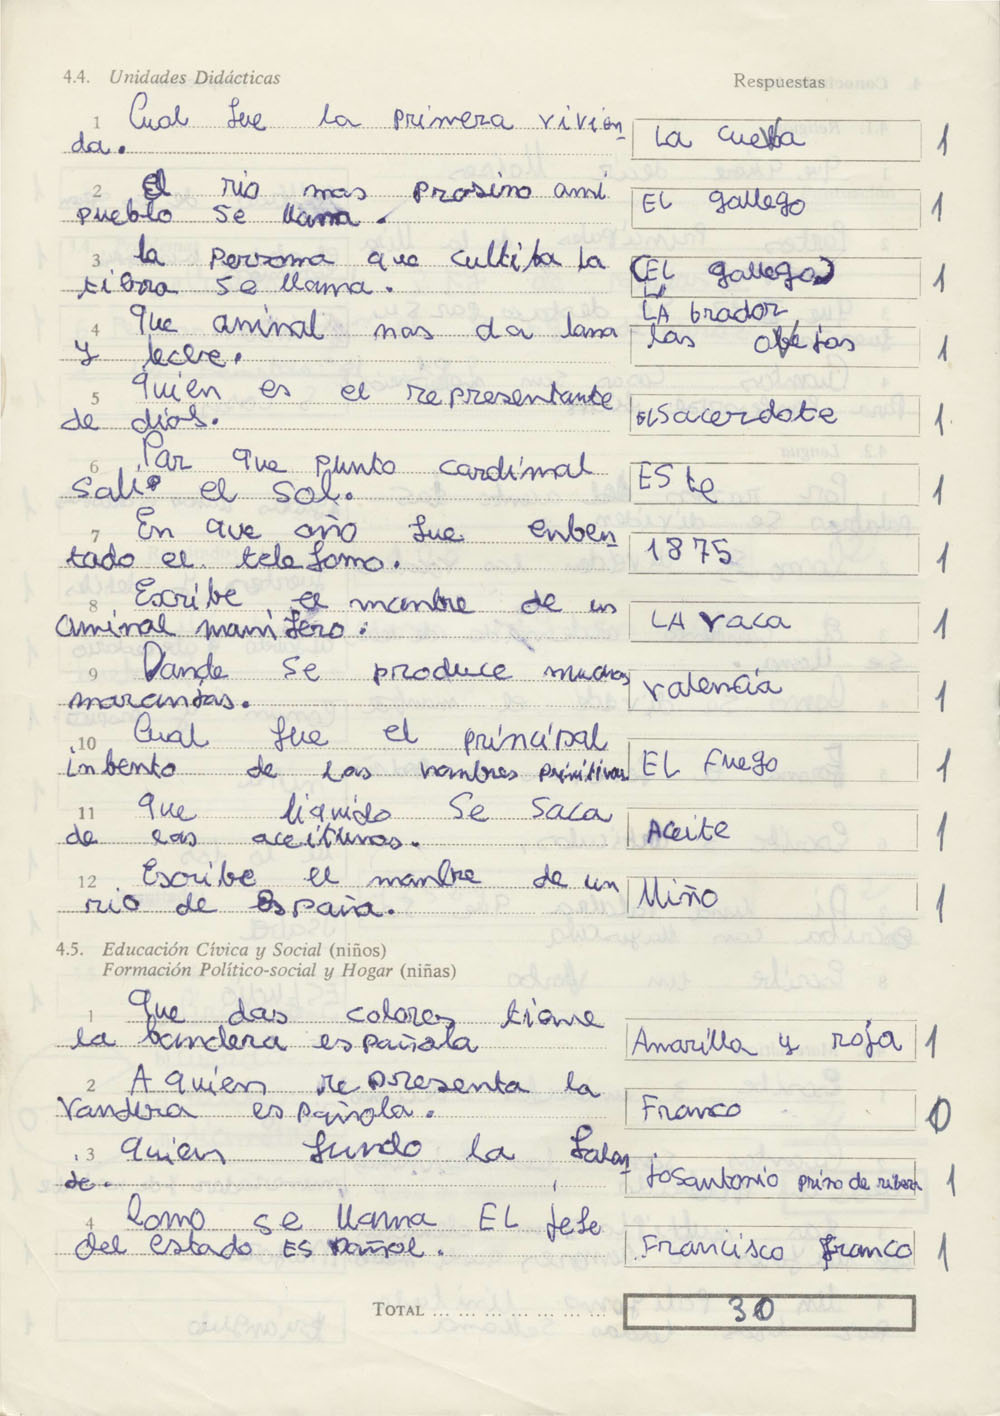 4.4. Unidades Didácticas Respuestas
1 Cual fue la primera vivien
da. La cueva 1
2 El rio mas prosimo ami
pueblo se llama. EL gallego 1
3 la persona que cultiba la (EL gallego) 1
tierra se llama. LA brador
4 Que aminal nos da lana
y leche. las obejas 1
5 Quien es el representante
de dios. EL Sacerdote 1
6 Por que punto cardinal
sale el sol. ESte 1
7 En que año fue enben
tado el telefomo. 1875 1
8 Escribe el nombre de un
aminal mamifero. LA vaca 1
9 Donde se produce muchas
naranjas. valencia 1
10 Cual fue el principal
inbento de los hombres primitivos EL Fuego 1
11 Que liquido se saca
de las aceitunas. Aceite 1
12 Escribe el nombre de un
rio de España. Miño 1
4.5. Educación Cívica y Social (niños)
Formación Político-social y Hogar (niñas)
1 Que dos colores tiene
la bandera española Amarilla y roja 1
2 A quien representa la
vandera española. Franco 0
3 quien fundo la falan
je. josantonio primo de ribera 1
4 Como se llama EL jefe
del estado Español. Francisco franco 1
TOTAL ... ... ... ... ... ... ... 30